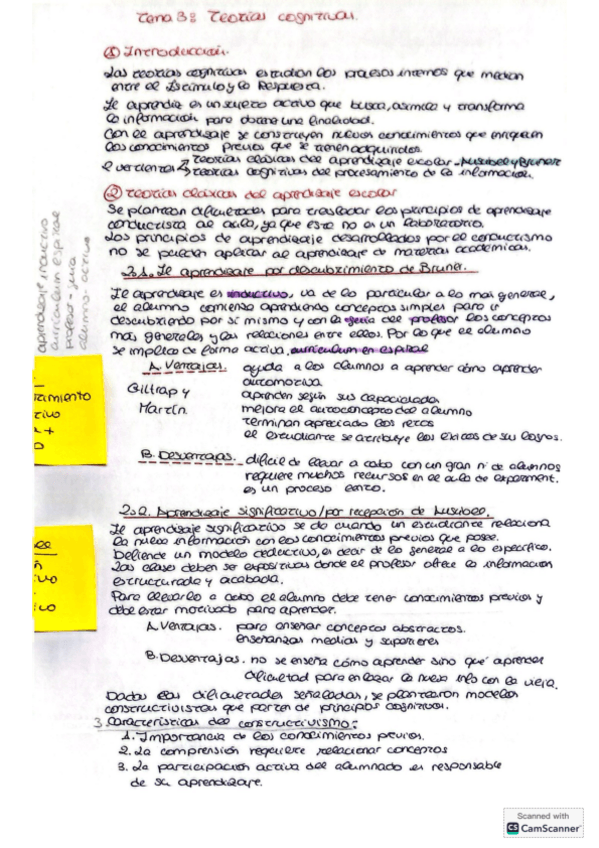 Tema 3: Teorías cognitivas.
① Introducción.
Las teorías cognitivas estudian los procesos internos que median
entre el Estímulo y la Respuesta.
El aprendiz es un sujeto activo que busca, asimila y transforma
la información para darle una finalidad.
Con el aprendizaje se construyen nuevos conocimientos que enriquecen
los conocimientos previos que se tienen adquiridos.
2 vertientes → teorías clásicas del aprendizaje escolar → Ausubel y Bruner
→ teorías cognitivas del procesamiento de la información.
② Teorías clásicas del aprendizaje escolar
Se plantean dificultades para trasladar los principios de aprendizaje
conductista al aula, ya que este no es un laboratorio.
Los principios de aprendizaje desarrollados por el conductismo
no se pueden aplicar al aprendizaje de materias académicas.
2.1. El aprendizaje por descubrimiento de Bruner.
El aprendizaje es inductivo, va de lo particular a lo más general,
el alumno comienza aprendiendo conceptos simples para ir
descubriendo por sí mismo y con la guía del profesor los conceptos
más generales y las relaciones entre ellos. Por lo que el alumno
se implica de forma activa, currículum en espiral
A. Ventajas. ayuda a los alumnos a aprender cómo aprender
automotiva
Giltrap y Martín
aprenden según sus capacidades
mejora el autoconcepto del alumno
terminan apreciado los retos
el estudiante se atribuye los éxitos de sus logros.
B. Desventajas. difícil de llevar a cabo con un gran nº de alumnos
requiere muchos recursos en el aula de experiment.
es un proceso lento.
2.2. Aprendizaje significativo/por recepción de Ausubel.
El aprendizaje significativo se da cuando un estudiante relaciona
la nueva información con los conocimientos previos que posee.
Defiende un modelo deductivo, es decir de lo general a lo específico.
Las clases deben ser expositivas donde el profesor ofrece la información
estructurada y acabada.
Para llevarlo a cabo el alumno debe tener conocimientos previos y
debe estar motivado para aprender.
A. Ventajas. para enseñar conceptos abstractos.
enseñanzas medias y superiores
B. Desventajas. no se enseña cómo aprender sino qué aprender
dificultad para enlazar la nueva info con la vieja.
Dadas las dificultades señaladas, se plantearon modelos
constructivistas que parten de principios cognitivos.
3. Características del constructivismo:
1. Importancia de los conocimientos previos.
2. La comprensión requiere relacionar conceptos
3. La participación activa del alumnado es responsable
de su aprendizaje.
aprendizaje inductivo
currículum espiral
profesor - guía
alumno activo
Scanned with
CS CamScanner